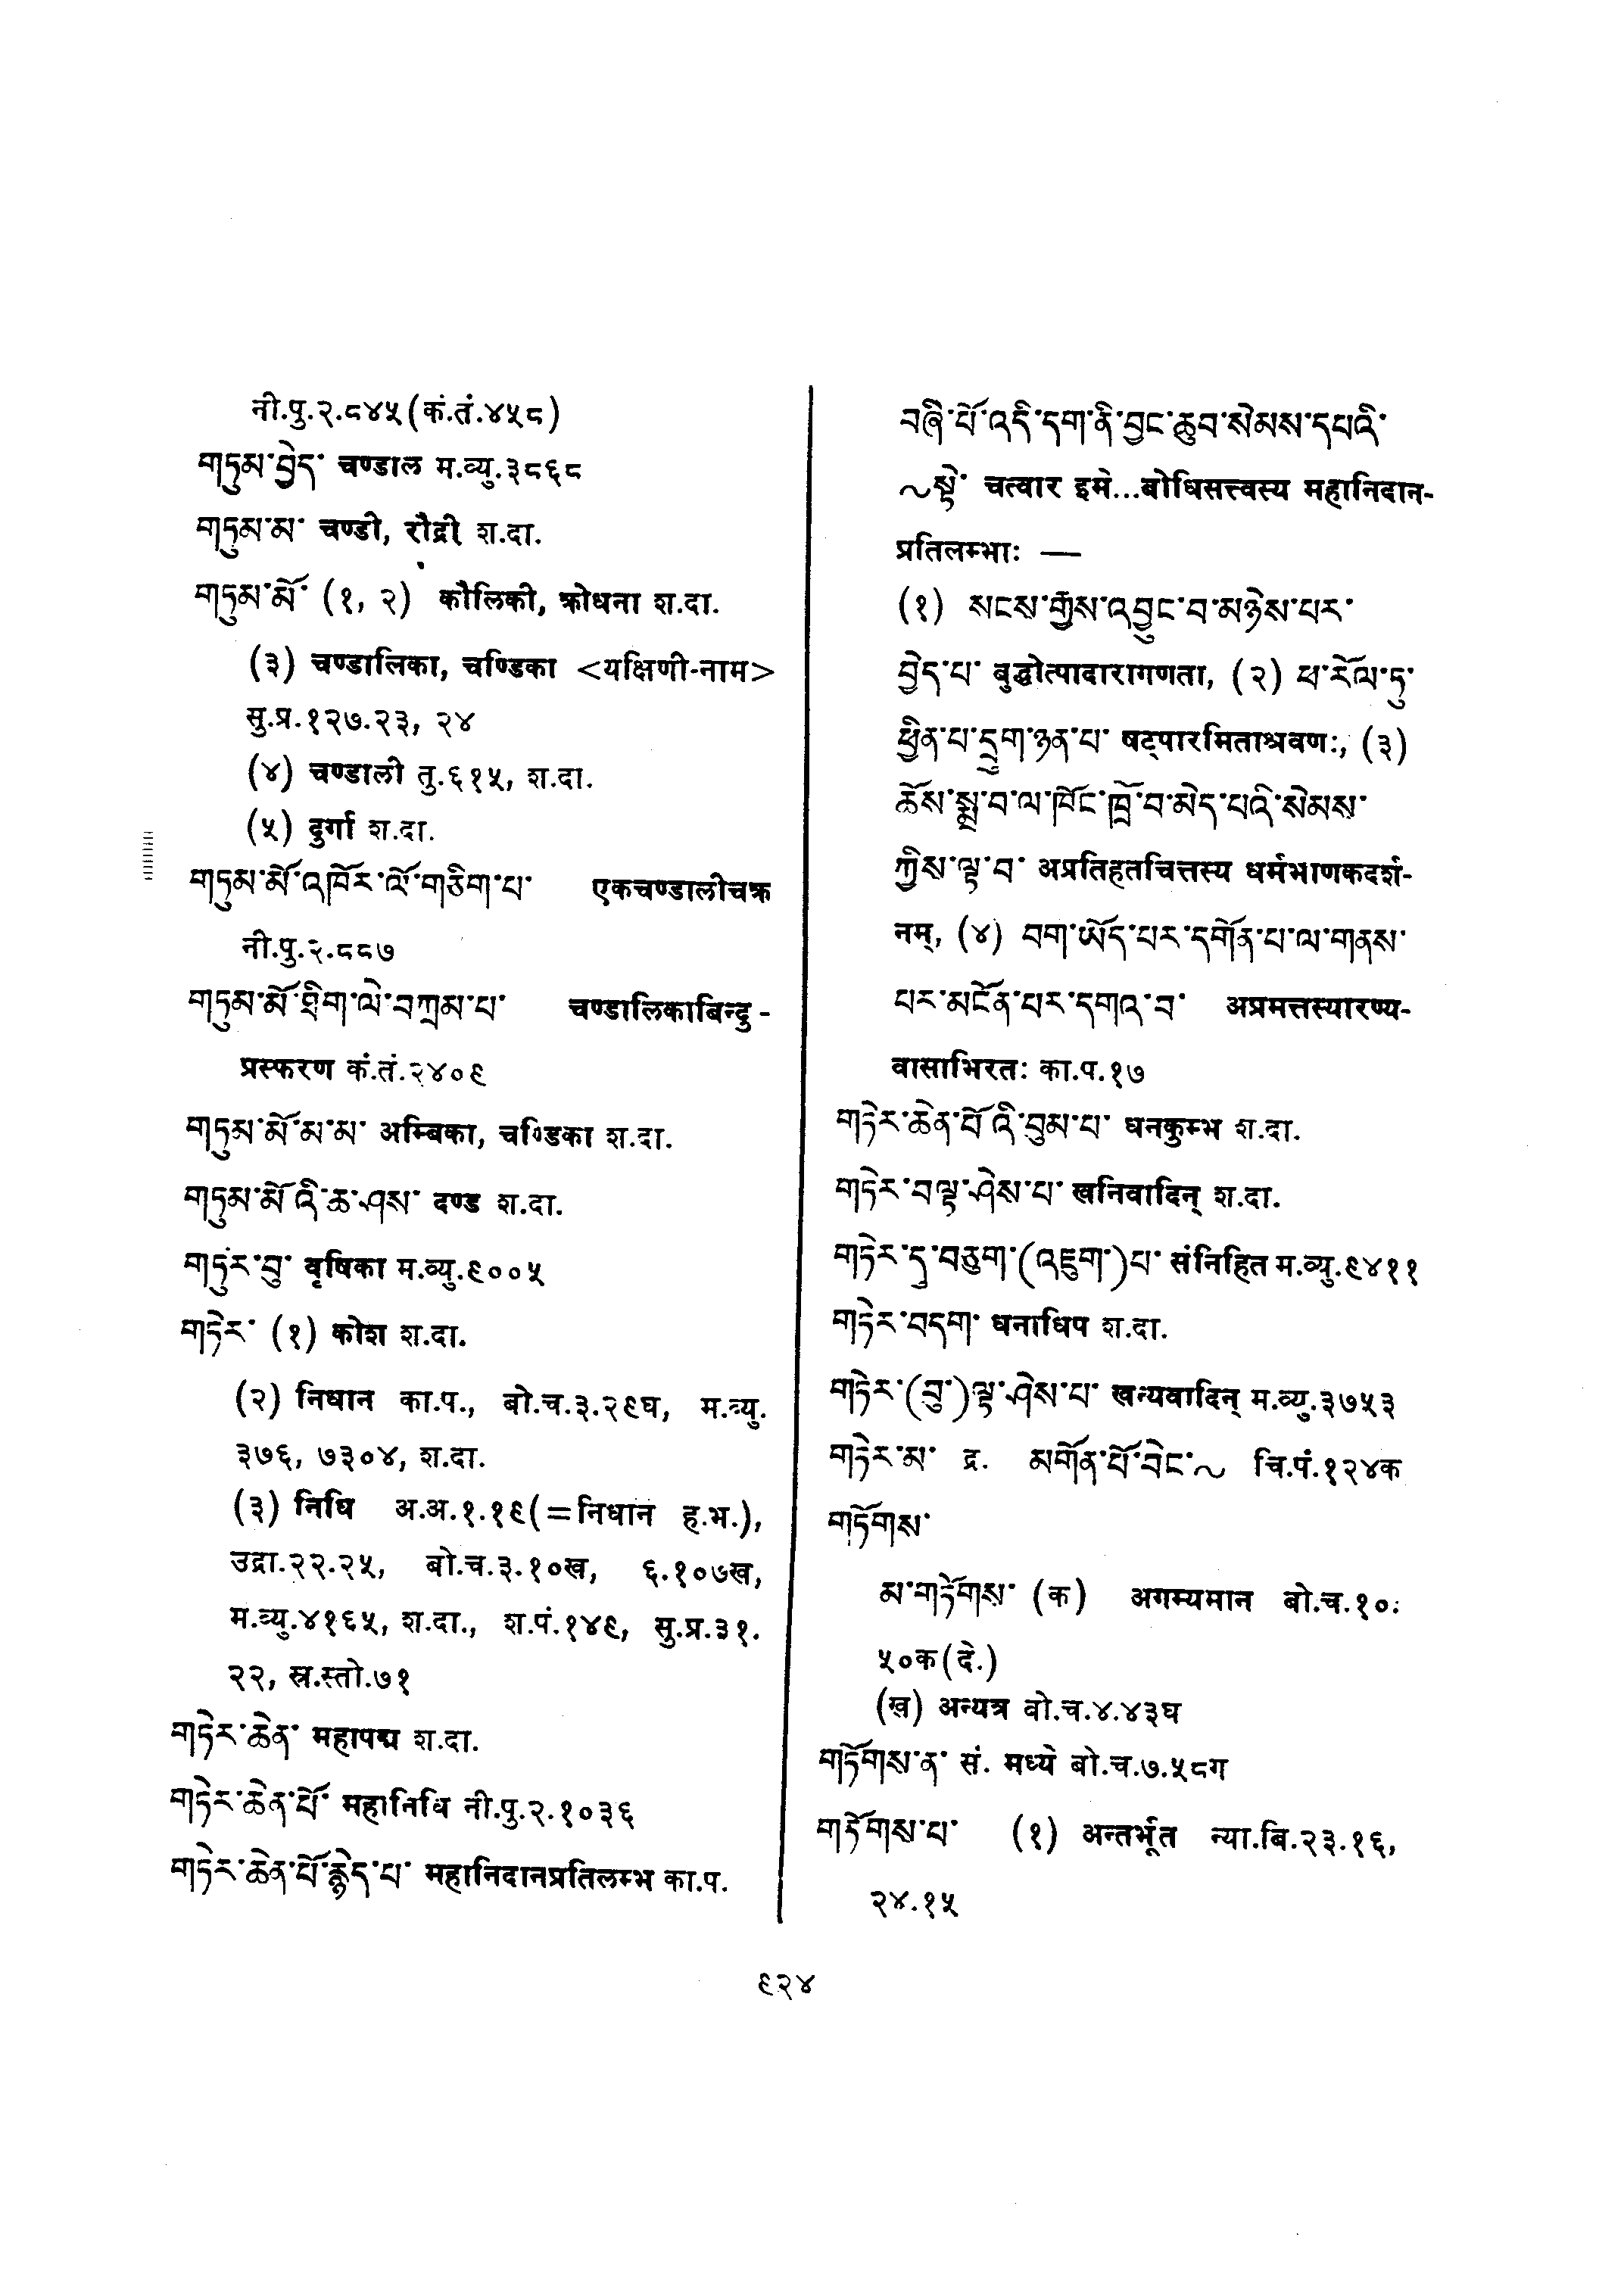 नी.पु.२.८४५(कं.तं.४५८)
གཏུམ་བྱེད་ चण्डाल म.व्यु.३८६८
གཏུམ་མ་ चण्डी, रौद्री श.दा.
གཏུམ་མོ་ (१, २) कौलिकी, क्रोधना श.दा.
(३) चण्डालिका, चण्डिका <यक्षिणी-नाम>
सु.प्र.१२७.२३, २४
(४) चण्डाली तु.६१५, श.दा.
(५) दुर्गा श.दा.
གཏུམ་མོ་འཁོར་ལོ་གཅིག་པ་ एकचण्डालीचक्र
नी.पु.२.८८७
གཏུམ་མོ་ཐིག་ལེ་བཀྲམ་པ་ चण्डालिकाबिन्दु-
प्रस्फरण कं.तं.२४०९
གཏུམ་མོ་མ་མ་ अम्बिका, चण्डिका श.दा.
གཏུམ་མོའི་ཆ་ཤས་ दण्ड श.दा.
གཏུར་བུ་ वृषिका म.व्यु.९००५
གཏེར་ (१) कोश श.दा.
(२) निधान का.प., बो.च.३.२९घ, म.व्यु.
३७६, ७३०४, श.दा.
(३) निधि अ.अ.१.१९(=निधान ह.भ.),
उद्रा.२२.२५, बो.च.३.१०ख, ६.१०७ख,
म.व्यु.४१६५, श.दा., श.पं.१४९, सु.प्र.३१.
२२, स्र.स्तो.७१
གཏེར་ཆེན་ महापद्म श.दा.
གཏེར་ཆེན་པོ་ महानिधि नी.पु.२.१०३६
གཏེར་ཆེན་པོ་རྙེད་པ་ महानिदानप्रतिलम्भ का.प.
བཞི་པོ་འདི་དག་ནི་བྱང་ཆུབ་སེམས་དཔའི་
~སྟེ་ चत्वार इमे...बोधिसत्त्वस्य महानिदान-
प्रतिलम्भाः —
(१) སངས་རྒྱས་འབྱུང་བ་མཉེས་པར་
བྱེད་པ་ बुद्धोत्पादारागणता, (२) ཕ་རོལ་ཏུ་
ཕྱིན་པ་དྲུག་ཉན་པ་ षट्पारमिताश्रवणः, (३)
ཆོས་སྨྲ་བ་ལ་ཁོང་ཁྲོ་བ་མེད་པའི་སེམས་
ཀྱིས་ལྟ་བ་ अप्रतिहतचित्तस्य धर्मभाणकदर्श-
नम्, (४) བག་ཡོད་པར་དགོན་པ་ལ་གནས་
པར་མངོན་པར་དགའ་བ་ अप्रमत्तस्यारण्य-
वासाभिरतः का.प.१७
གཏེར་ཆེན་པོའི་བུམ་པ་ धनकुम्भ श.दा.
གཏེར་བལྟ་ཤེས་པ་ खनिवादिन् श.दा.
གཏེར་དུ་བཅུག་(འཇུག་)པ་ संनिहित म.व्यु.९४११
གཏེར་བདག་ धनाधिप श.दा.
གཏེར་(བུ་)ལྟ་ཤེས་པ་ खन्यवादिन् म.व्यु.३७५३
གཏེར་མ་ द्र. མགོན་པོ་བེང་~ चि.पं.१२४क
གཏོགས་
མ་གཏོགས་ (क) अगम्यमान बो.च.१०.
५०क(दे.)
(ख) अन्यत्र बो.च.४.४३घ
གཏོགས་ན་ सं. मध्ये बो.च.७.५८ग
གཏོགས་པ་ (१) अन्तर्भूत न्या.बि.२३.१६,
२४.१५
९२४